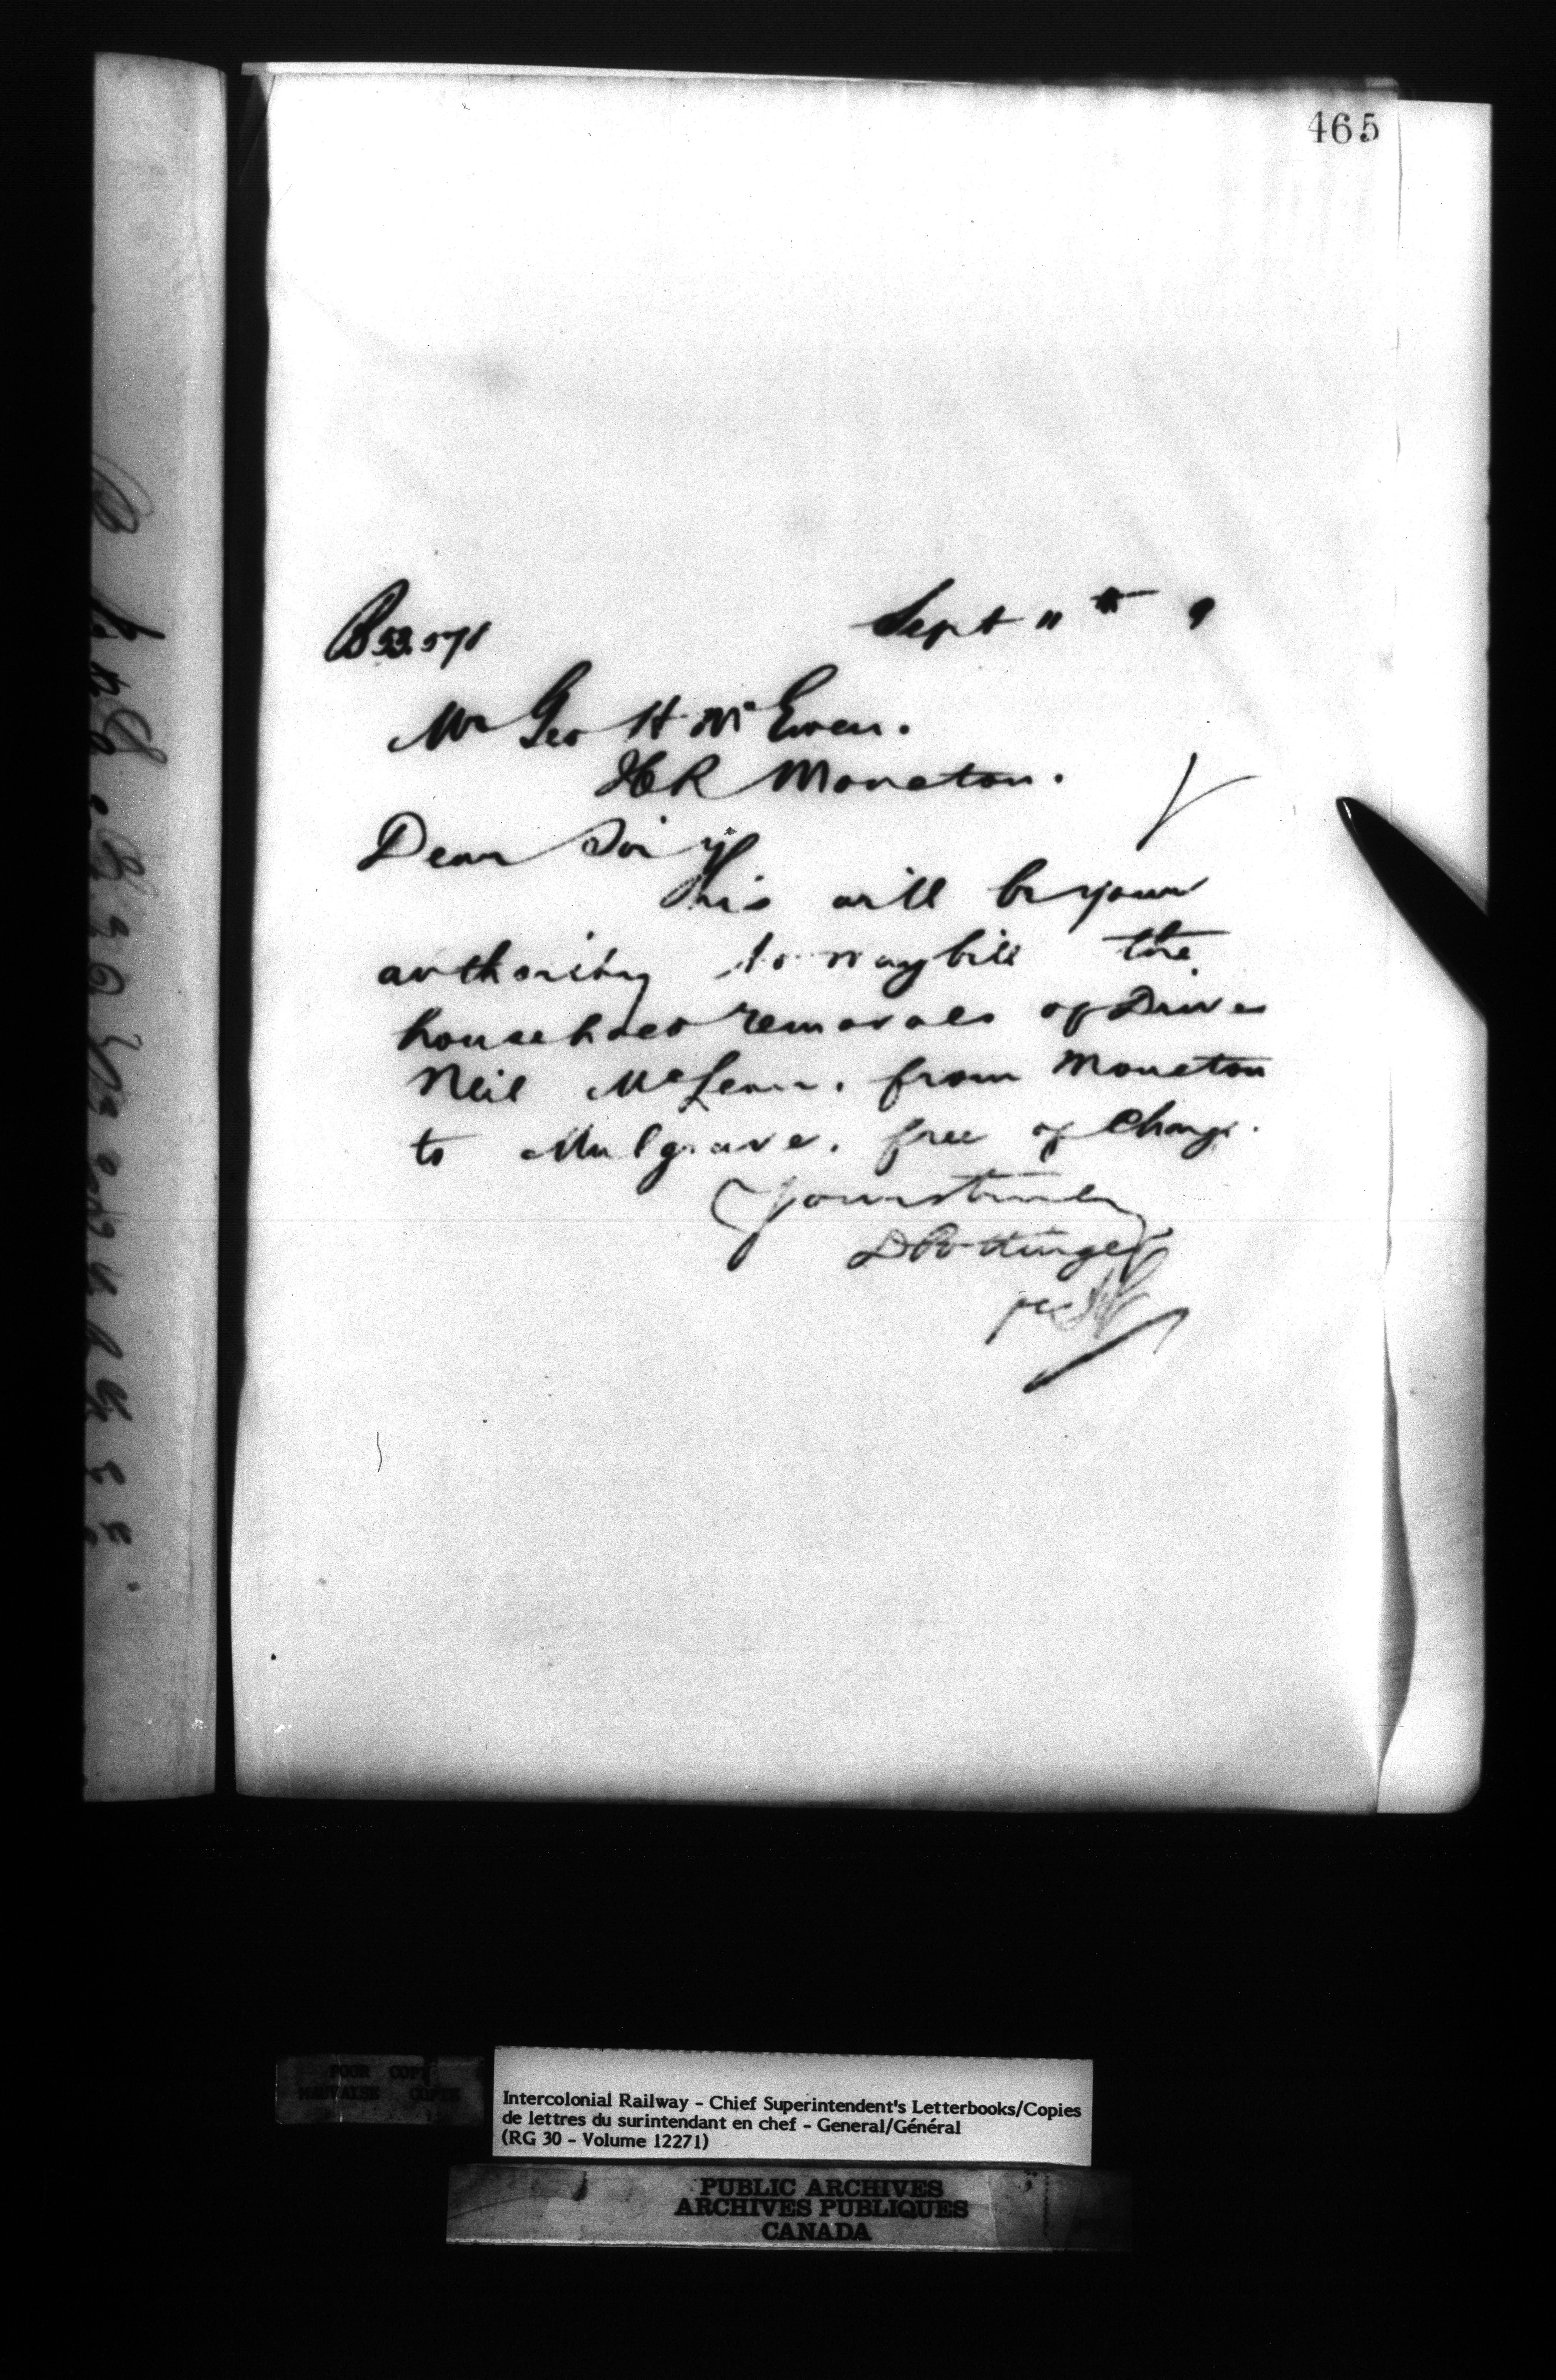 465
B 53.578
Sept 11th 9
Mr Geo H McEwen.
ICR Moncton.
Dear Sir,
This will be your
authority to waybill the
household removals of Driver
Neil McLean. from Moncton
to Mulgrave. free of Charge.
Yours truly
D Pottinger
per
POOR COPY
MAUVAISE COPIE
Intercolonial Railway - Chief Superintendent's Letterbooks/Copies
de lettres du surintendant en chef - General/Général
(RG 30 - Volume 12271)
PUBLIC ARCHIVES
ARCHIVES PUBLIQUES
CANADA